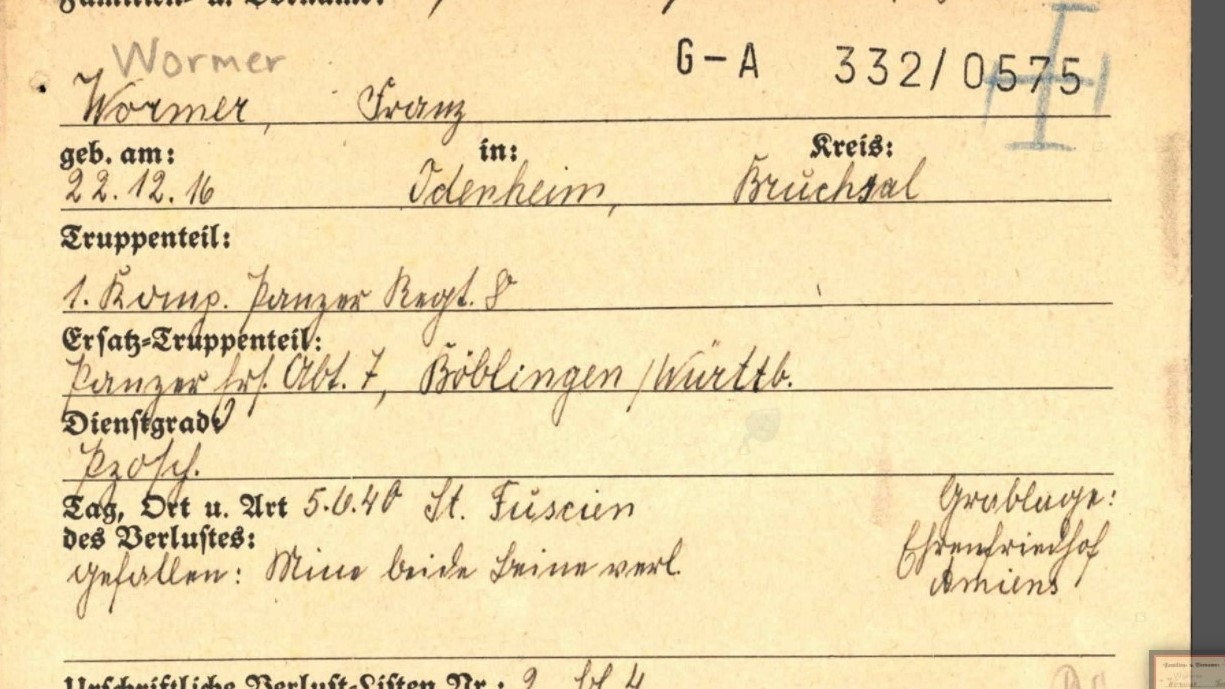 Familien- u. Vorname:
Wormer
G-A 332/0575
Wormer, Franz
geb. am: in: Kreis:
22.12.16 Odenheim, Bruchsal
Truppenteil:
1. Komp. Panzer Regt. 8
Ersatz-Truppenteil:
Panzer Ers. Abt. 7, Böblingen/Württb.
Dienstgrad:
Pzosch.
Tag, Ort u. Art 5.6.40 St. Fuscien Grablage:
des Verlustes: Ehrenfriedhof
gefallen: Mine beide Beine verl. Amiens
Urschriftliche Verlust-Listen Nr.: 2 bl 4